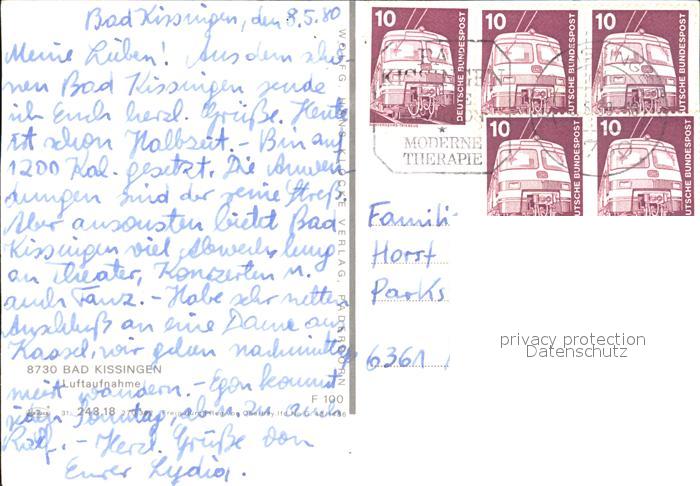 Bad Kissingen, den 8.5.80
Meine Lieben! Aus dem schö-
nen Bad Kissingen sende
ich Euch herzl. Grüße. Heute
ist schon Halbzeit. – Bin auf
1200 Kal. gesetzt. Die Anwen-
dungen sind der reine Streß.
Aber ansonsten bietet Bad
Kissingen viel Abwechslung
an Theater, Konzerten u.
auch Tanz. – Habe sehr netten
Anschluß an eine Dame aus
Kassel, wir gehen nachmittags
8730 BAD KISSINGEN
Luftaufnahme
meist wandern. – Egon kommt
F 100
jeden Sonntag,
31. 243.18
Ralf. – Herzl. Grüße von
Eurer Lydia.
VERLAG, PADERBORN
10 10 10
DEUTSCHE BUNDESPOST
DEUTSCHE BUNDESPOST
DEUTSCHE BUNDESPOST
BAD
KISSINGEN
MODERNE
THERAPIE
10 10
Famili
Horst
Parks
privacy protection
Datenschutz
6361